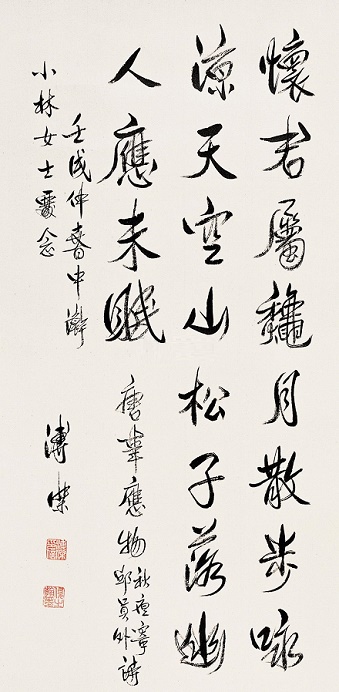 懷君屬龝月散步咏
涼天空山松子落幽
人應未眠
唐韋應物
秋夜寄
邱員外詩
壬戌仲春中澣
小林女士念
溥傑